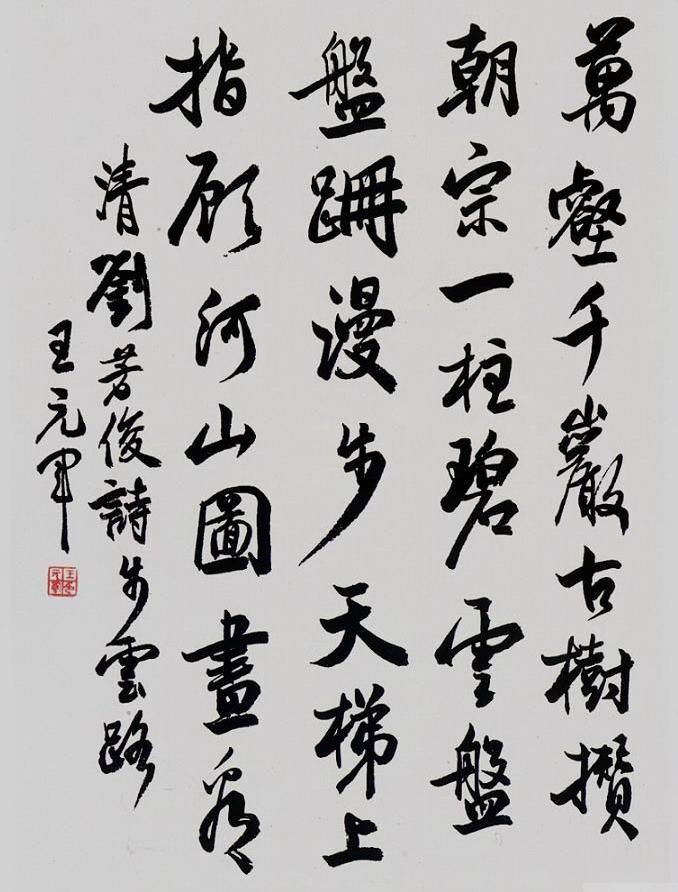 萬壑千巖古樹攢
朝宗一柱碧雲盤
盤跚漫步天梯上
指顧河山圖畫看
清劉芳俊詩步雲路
王元軍